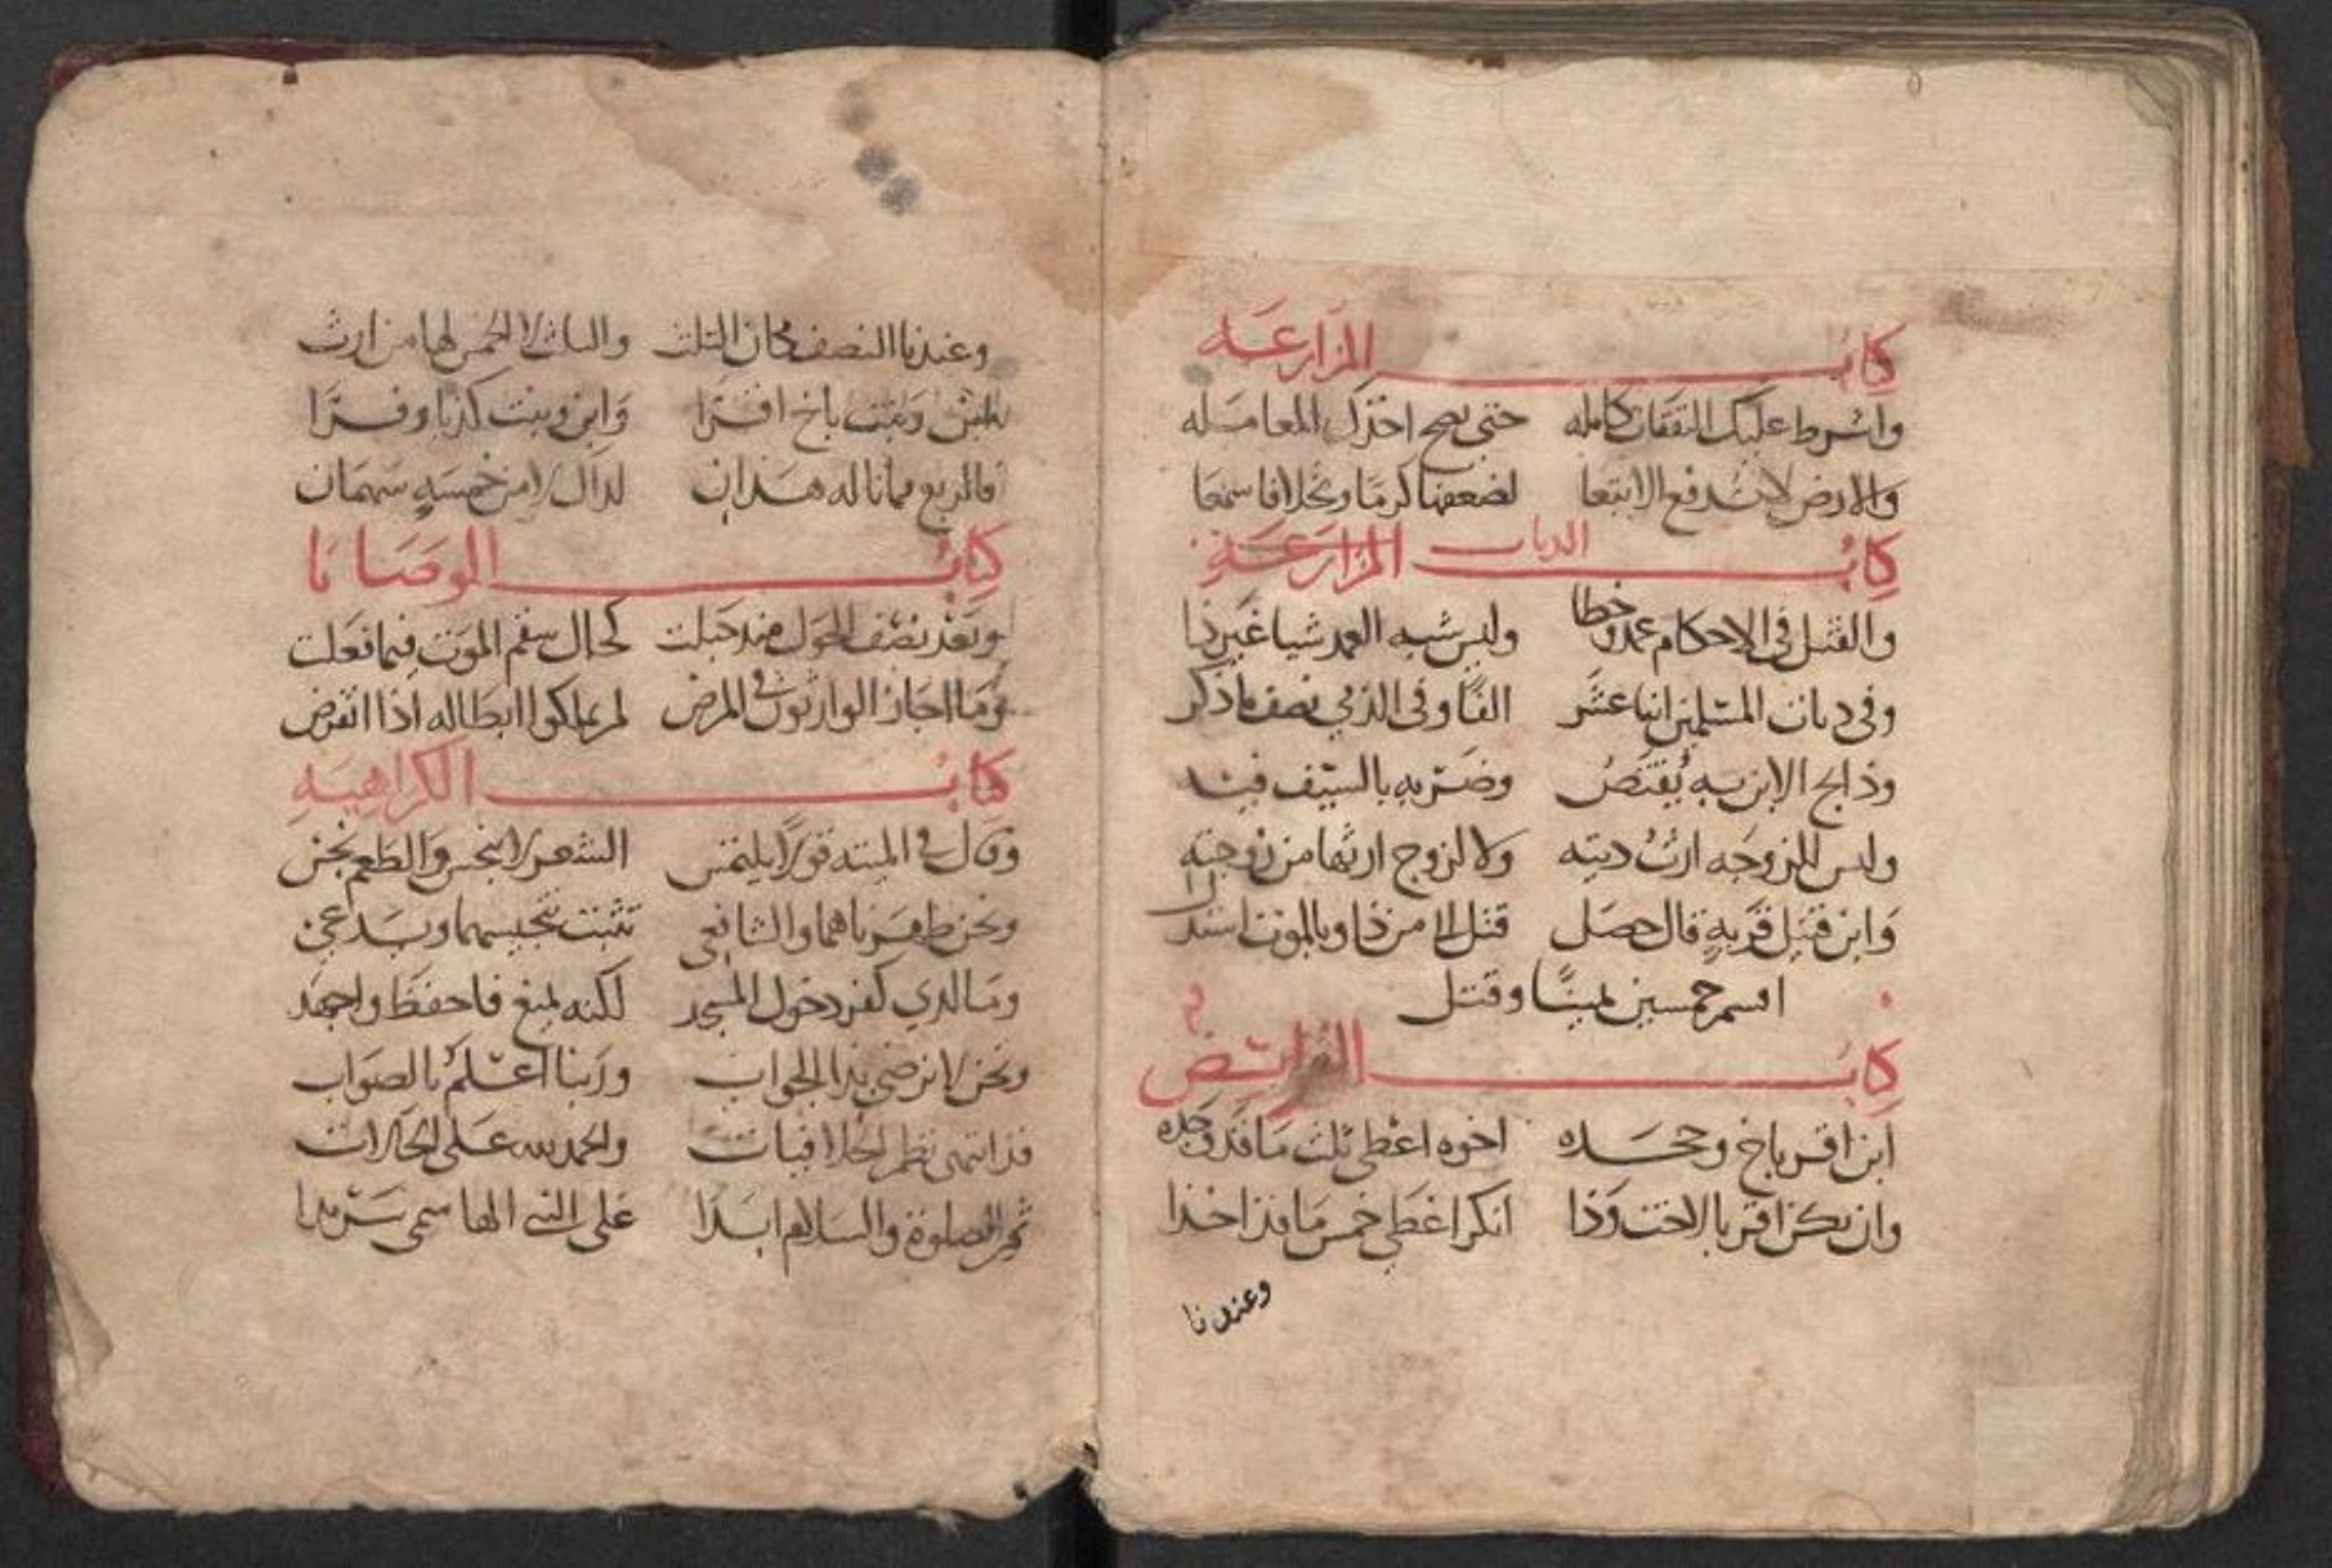 كتاب المزارعه
واشرط عليك النفقات كامله حتى يصح اخذك المعامله
والارض لا تدفع الا تبعا لضعفها كرما ونخلا فاسمعا
كتاب الديات المزارعة
والقتل في الاحكام عمد وخطا وليس شبه العمد شيا غير ذا
وفي ديات المسلمين اثنا عشر الفا وفي الذمي نصف ما ذكر
وذابح الابن به يقتص وضربه بالسيف فيه
وليس للزوجه ارث ديته ولا لزوج ارثها من زوجته
وابن قتيل قرية قال حصل قتل الا من ذا وبالموت استدل
اقسم خمسين يمينا وقتل
كتاب الفرايض
ابن اقر باخ وجحده اخوه اعطى ثلث ما قد وجده
وان يكن اقر بالاخت وذا انكر اعطى خمس ما قد اخذا
وعندنا
وعندنا النصف مكان الثلث والثلث لا الخمس لها من ارث
وبنت باخ اقرا وابن وبنت كذبا وفرا
فالربع مما ناله هذان لذاك لا من خمسة سهمان
كتاب الوصايا
وبعد نصف الحول منذ حبلت كحال سقم الموت فيما فعلت
وما اجاز الوارثون في المرض لم يملكوا ابطاله اذا انقرض
كتاب الكراهية
وقال في الميتة قولا يلتمس الشعر لا ينجس والطعم نجس
ونحن طهرناهما والشافعي تثبت تنجيسهما ويدعي
وما لذي كفر دخول المسجد لكنه يمنع فاحفظ واجهد
ونحن لا نرضى بذا الجواب وربنا اعلم بالصواب
قد انتهى نظم الخلافيات والحمد لله على الحالات
ثم الصلوة والسلام ابدا على النبي الهاشمي سرمدا